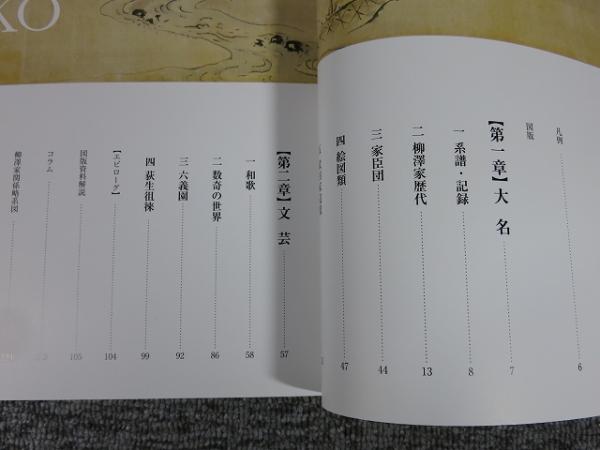 凡例 6
図版
【第一章】大名 7
一 系譜・記録 8
二 柳澤家歴代 13
三 家臣団 44
四 絵図類 47
【第二章】文芸 57
一 和歌 58
二 数奇の世界 86
三 六義園 92
四 荻生徂徠 99
【エピローグ】 104
図版資料解説 105
コラム
柳澤家関係略系図
KO